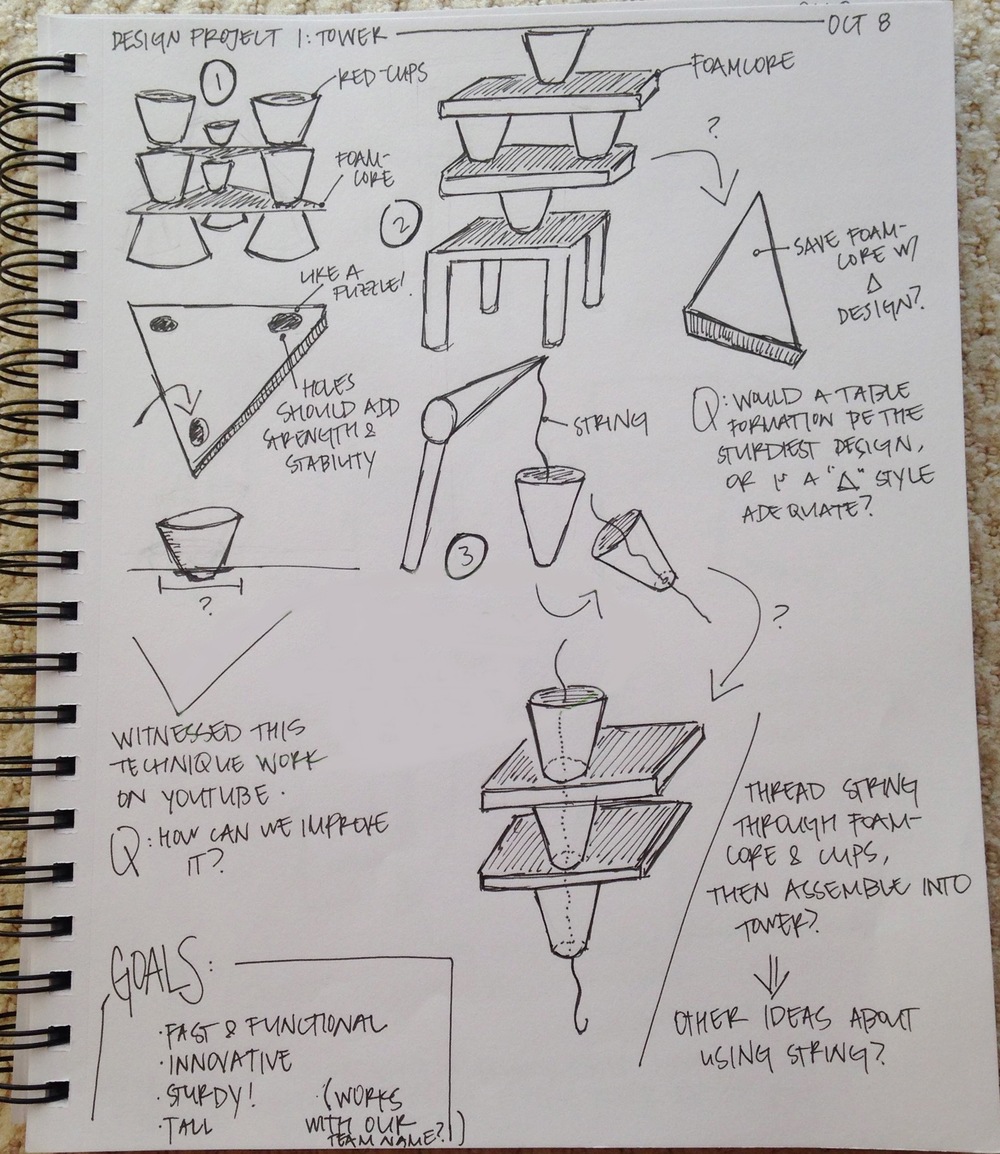 DESIGN PROJECT 1: TOWER
OCT 8
1
RED-CUPS
FOAM-
CORE
LIKE A
PUZZLE!
HOLES
SHOULD ADD
STRENGTH &
STABILITY
?
WITNESSED THIS
TECHNIQUE WORK
ON YOUTUBE.
Q: HOW CAN WE IMPROVE
IT?
2
FOAMCORE
?
SAVE FOAM-
CORE W/
Δ
DESIGN?
Q: WOULD A TABLE
FORMATION BE THE
STURDIEST DESIGN,
OR IS A "Δ" STYLE
ADEQUATE?
3
STRING
?
THREAD STRING
THROUGH FOAM-
CORE & CUPS,
THEN ASSEMBLE INTO
TOWER?
⇓
OTHER IDEAS ABOUT
USING STRING?
GOALS:
· FAST & FUNCTIONAL
· INNOVATIVE
· STURDY!
· TALL
(WORKS
WITH OUR
TEAM NAME?!)